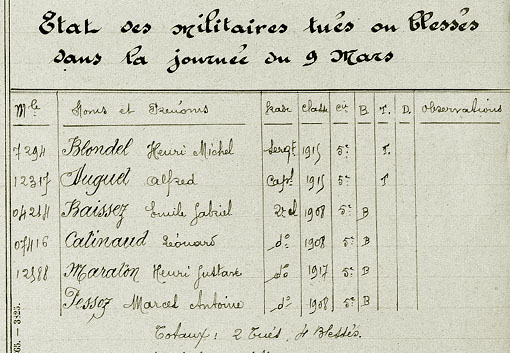 Etat des militaires tués ou blessés
dans la journée du 9 Mars
Mle Noms et Prénoms Grade Classe Cie B. T. D. Observations
7294 Blondel Henri Michel Sergt 1915 5e T.
12317 Auguel Alfred Capl 1915 5e T
04214 Baissez Emile Gabriel 2e cl 1908 5e B
07416 Catinaud Léonard do 1908 5e B
12588 Maraton Henri Gustave do 1917 5e B
Pessoz Marcel Antoine do 1908 5e B
Totaux : 2 Tués, 4 Blessés.